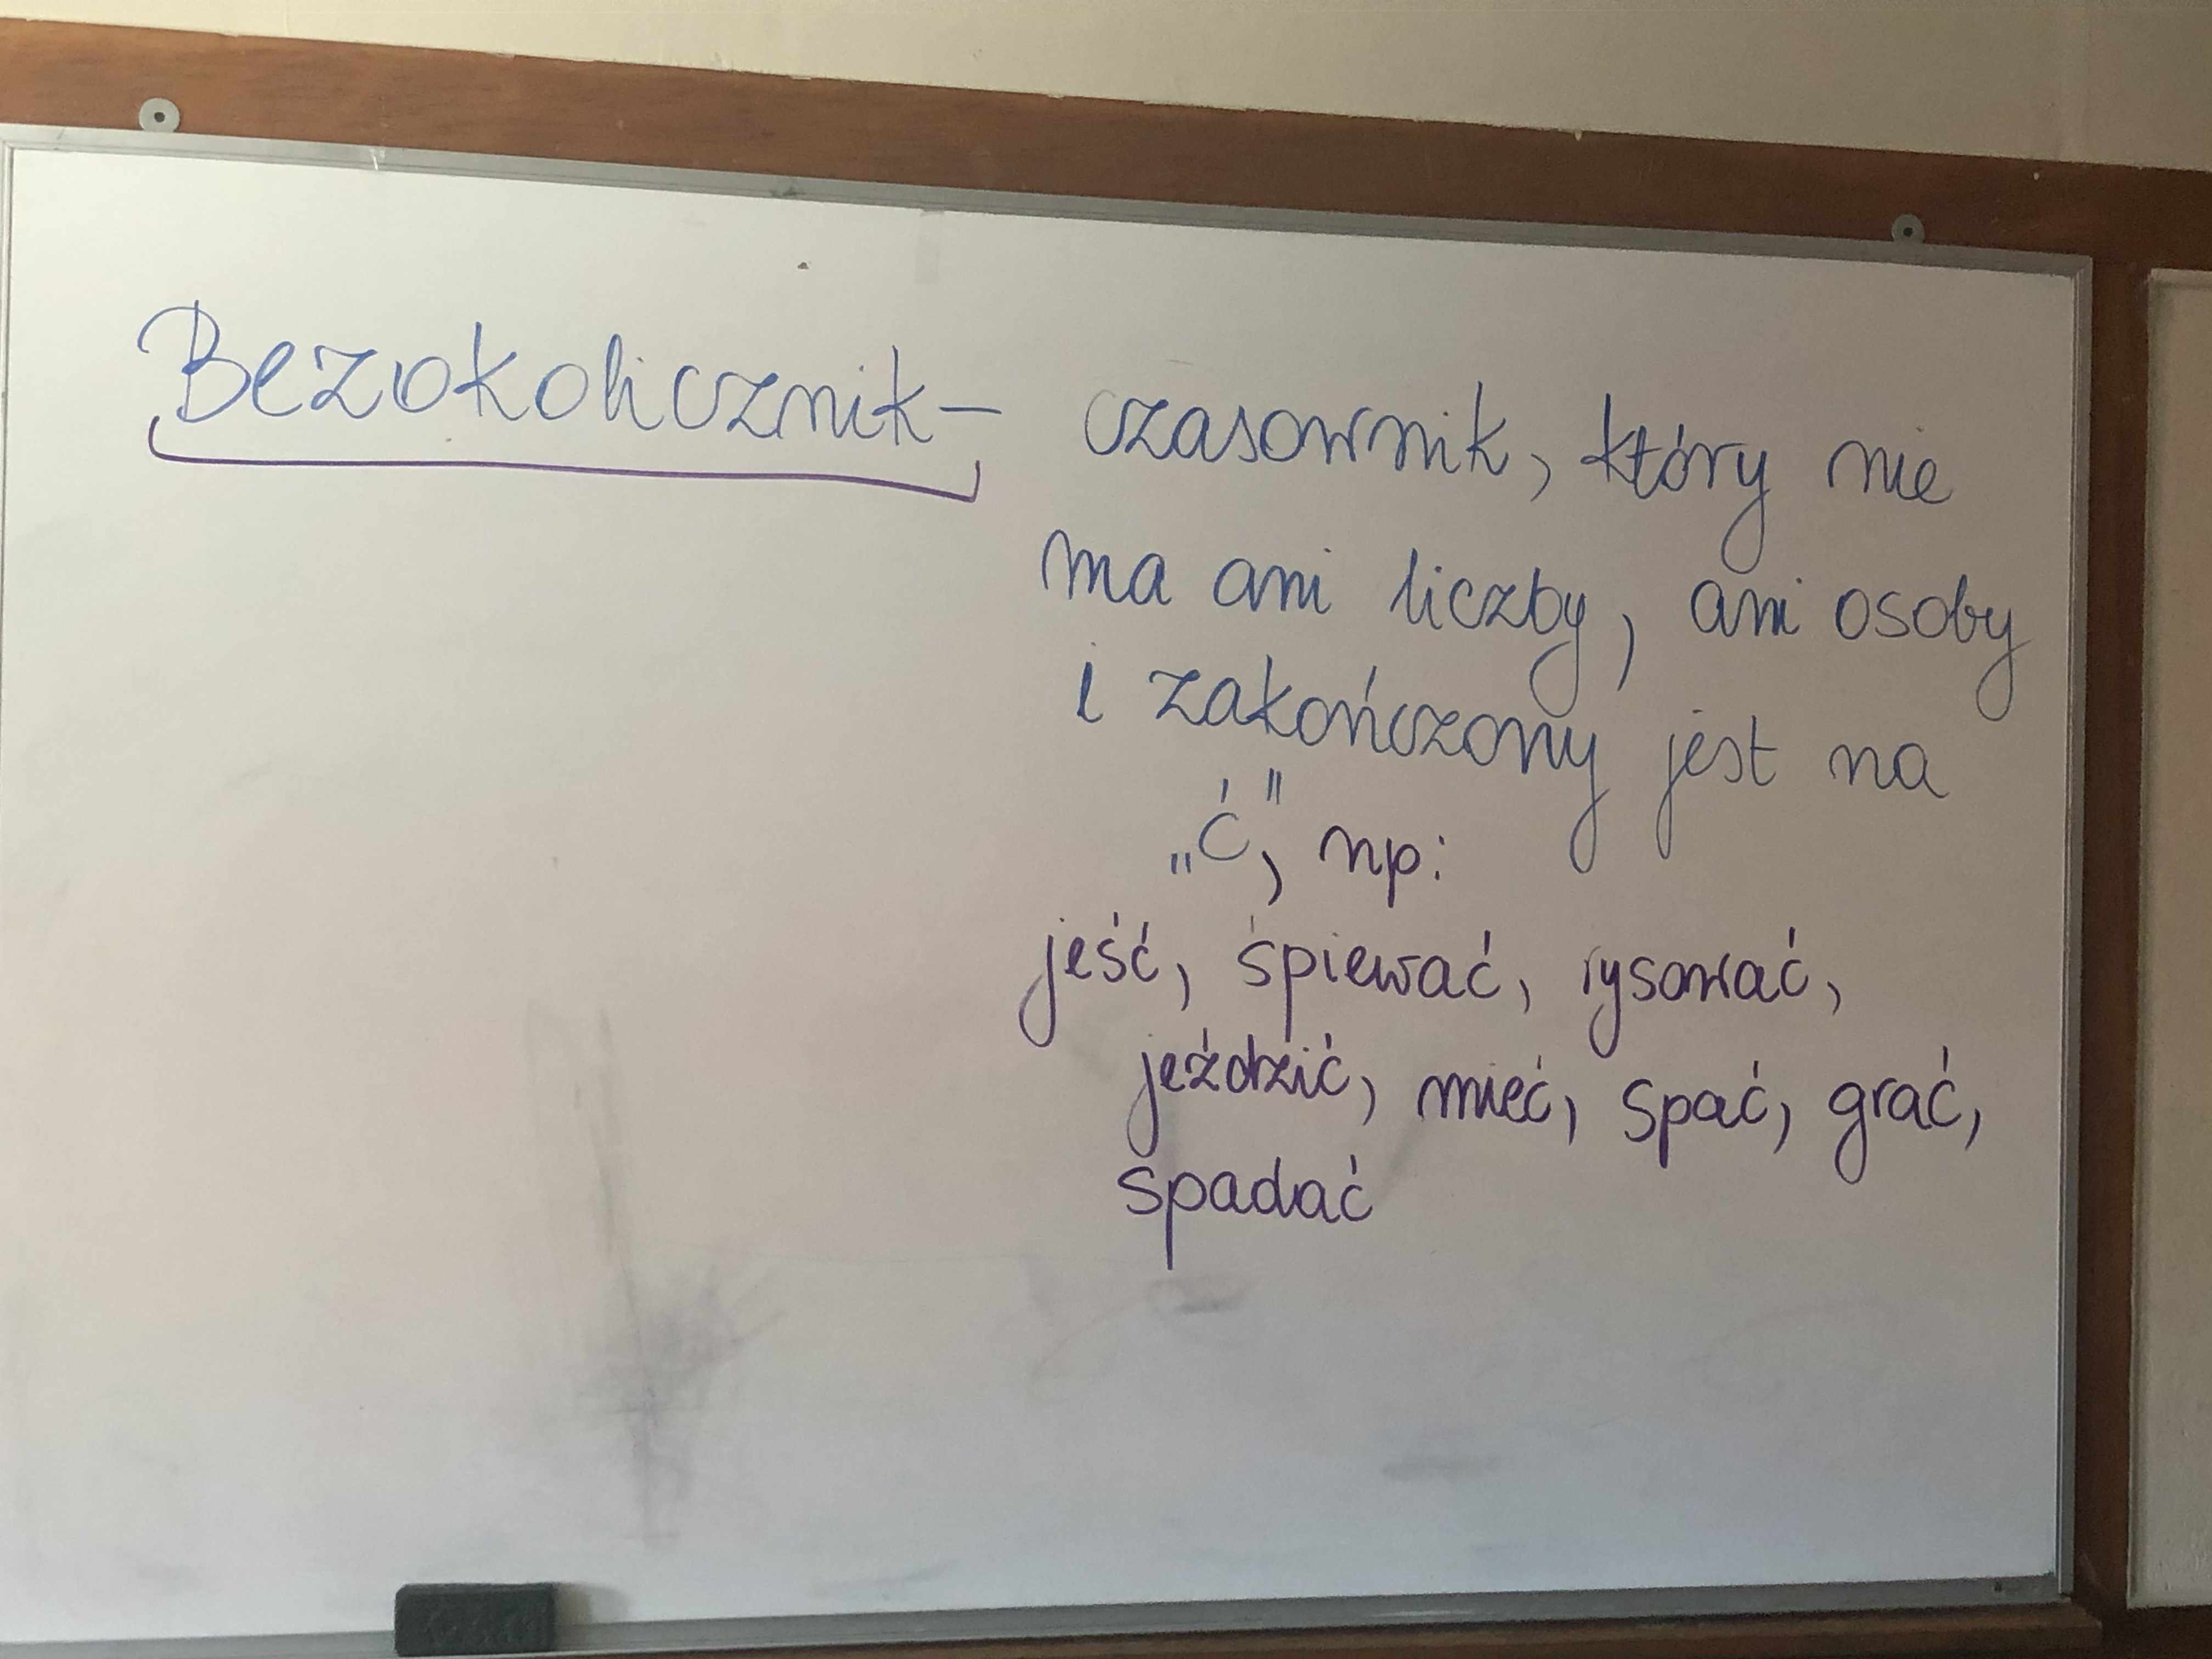 Bezokolicznik – czasownik, który nie
ma ani liczby, ani osoby
i zakończony jest na
„ć”, np:
jeść, śpiewać, rysować,
jeździć, mieć, spać, grać,
spadać